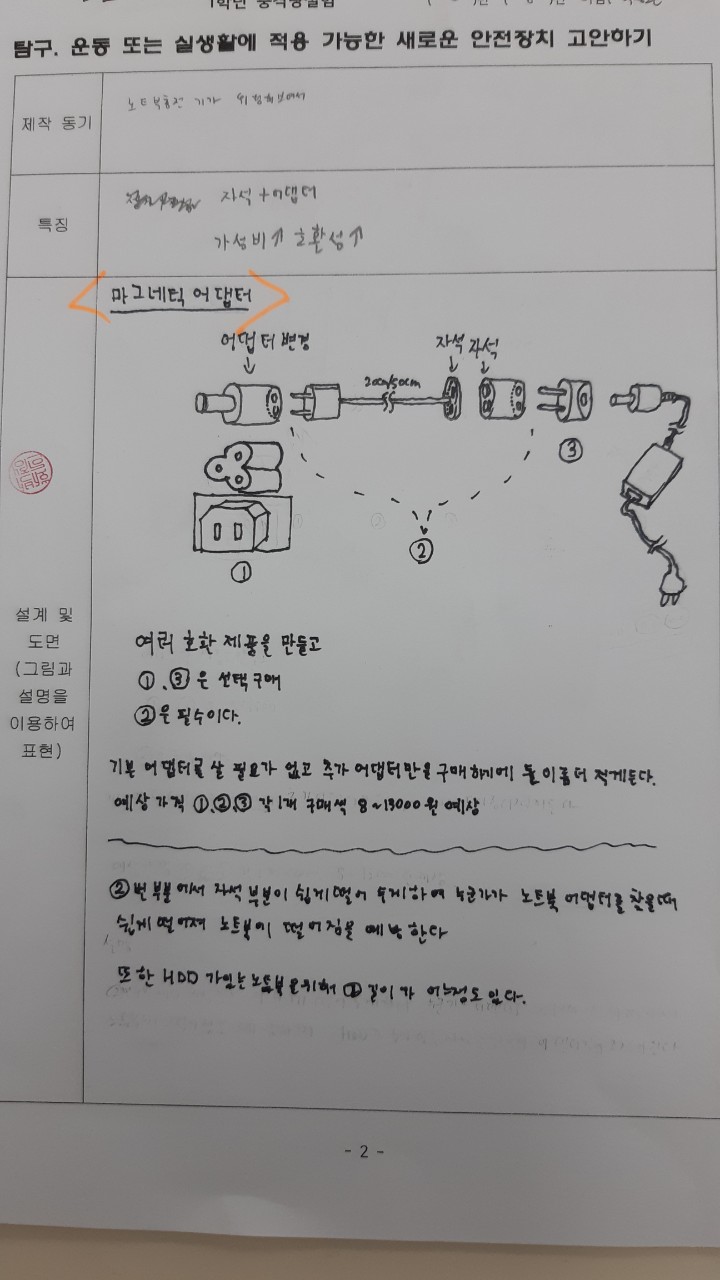 탐구. 운동 또는 실생활에 적용 가능한 새로운 안전장치 고안하기
제작 동기
노트북충전 기가 위험해보여서
특징
자석 + 어댑터
가성비↑ 호환성↑
<마그네틱 어댑터>
어댑터 변경
자석 자석
20cm/50cm
③
②
①
설계 및
도면
(그림과
설명을
이용하여
표현)
여러 호환 제품을 만들고
①, ③은 선택구매
②은 필수이다.
기본 어댑터를 살 필요가 없고 추가 어댑터만을 구매하기에 돈이 좀 더 적게든다.
예상가격 ①,②,③ 각 1개 구매시 8~13000원 예상
②번 부분에서 자석 부분이 쉽게 떨어 지게하여 누군가가 노트북 어댑터를 찼을때
쉽게 떨어져 노트북이 떨어짐을 예방한다
또한 HDD 가있는노트북을위해 ② 길이가 어느정도 있다.
- 2 -